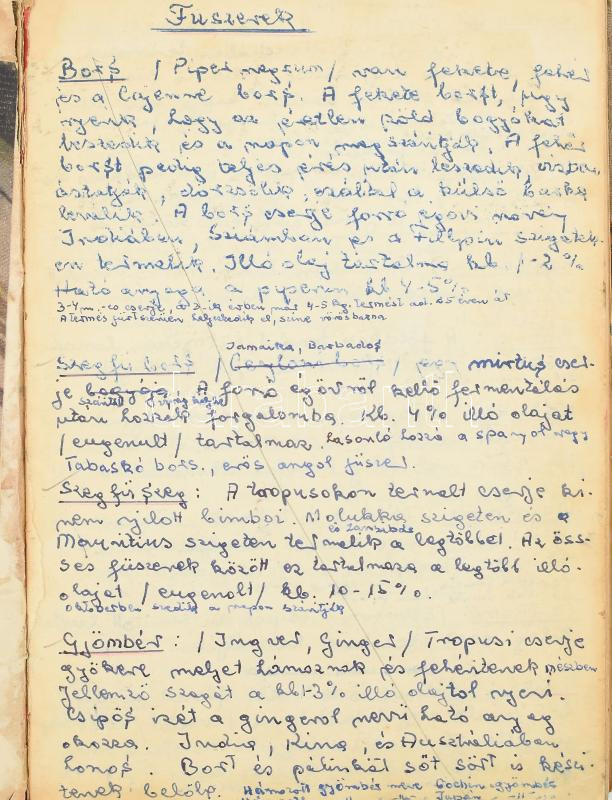 Fűszerek
Bors / Piper negrum / van fekete, fehér
és a Cayenne bors. A fekete borst, úgy
nyerik, hogy az éretlen zöld bogyókat
leszedik és a napon megszárítják. A fehér
borst pedig teljes érés után leszedik, vízben
áztatják, dörzsölik, ezáltal a külső burka
leválik. A bors cserje forró égövi növény
Indiában, Sziámban és a Fillipin szigetek-
en termelik. Illó olaj tartalma kb. 1-2%
Ható anyaga a piperin kb 4-5%
3-4 m.-es cserje, a 3-ik évben már 4-5 kg. termést ad. 25 éven át
A termés fürtszerűen helyezkedik el, színe vörösbarna
Jamaika, Barbados
Szegfűbors / / egy mirtus cser-
je bogyója. A forró égövről kellő fermentálás
szárított virág kelyhe
után hozzák forgalomba. Kb. 4% illó olajat
/ eugenult / tartalmaz. Hasonló hozzá a spanyol vagy
Tabaskó bors., erős angol fűszer.
Szegfűszeg : A tropusokon termelt cserje ki-
nem nyílott bimbói. Molukka szigeten és a
és Zanzibár
Mauritius szigeten termelik a legtöbbet. Az ösz-
szes fűszerek között ez tartalmazza a legtöbb illó-
olajat / eugenolt / kb. 10-15%.
Októberben szedik a napon szárítják
Gyömbér : / Ingver, Ginger / Tropusi cserje
gyökere melyet hámoznak és fehérítenek mészben
Jellemző szagát a kb 1-3% illó olajtól nyeri.
Csípős ízét a gingerol nevű ható anyag
okozza. India, Kína, és Ausztráliában
honos. Bort és pálinkát sőt sört is készí-
tenek belőle. Hámozott gyömbér neve Cochin gyömbér
Japán